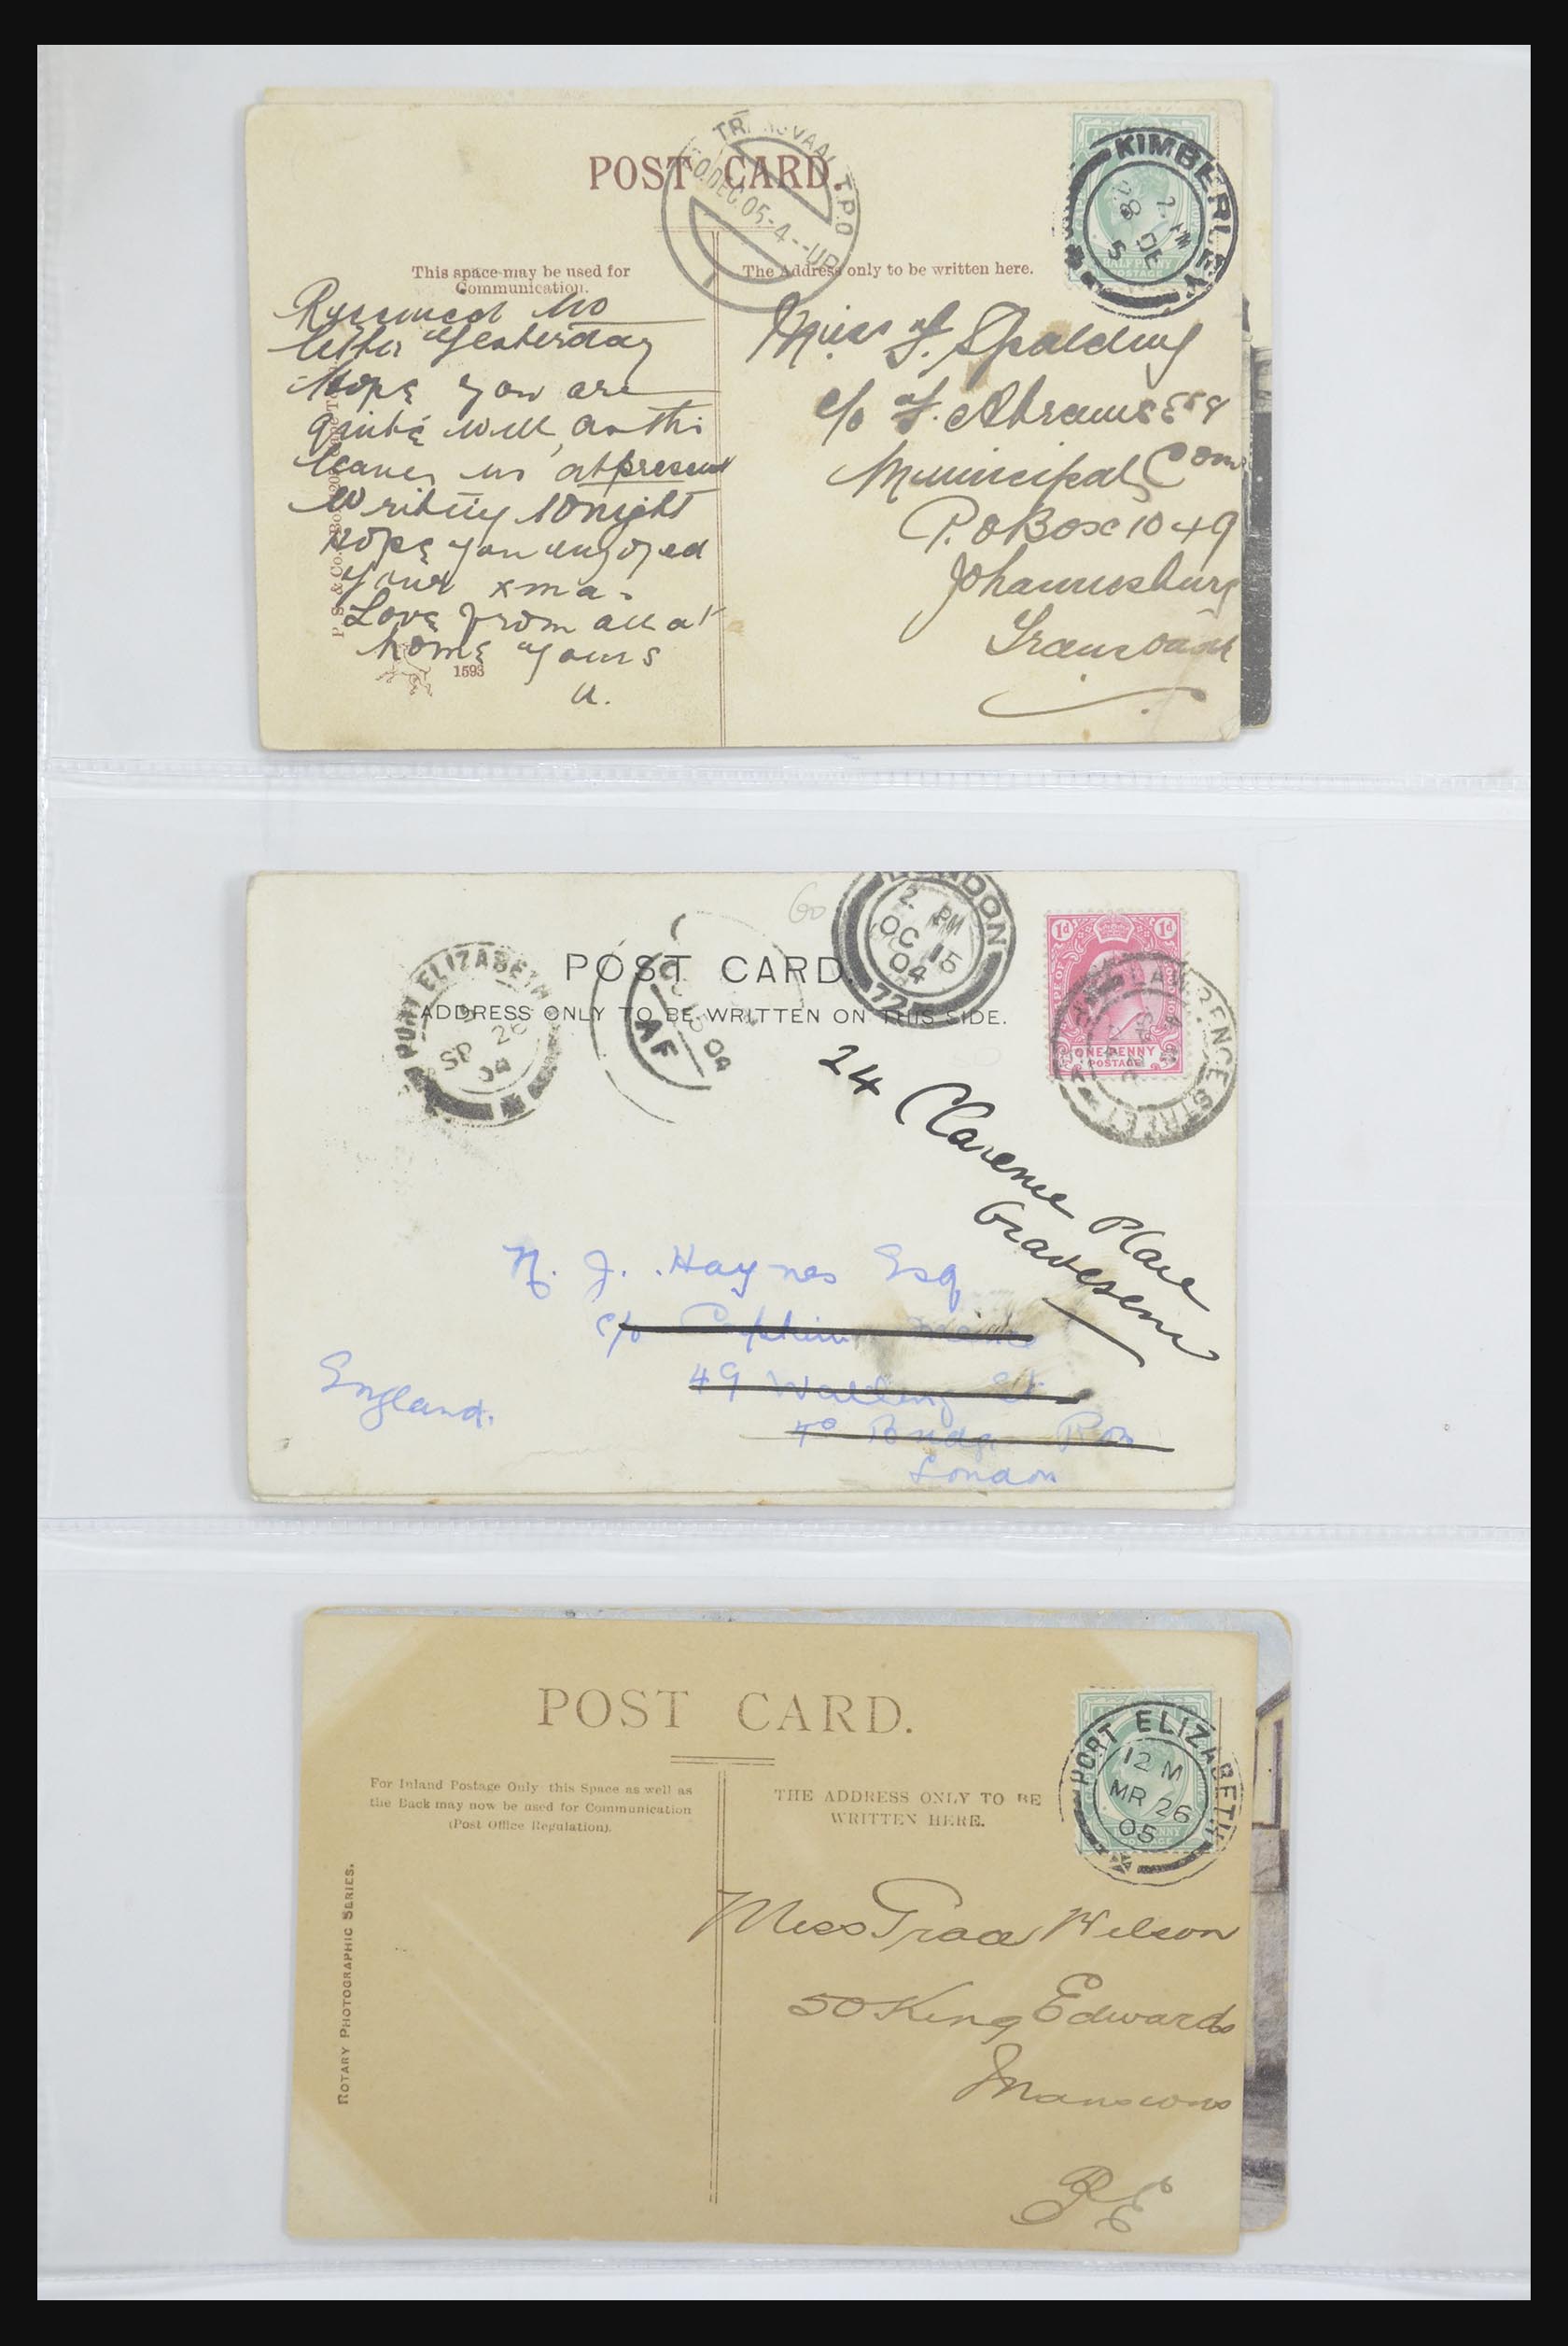 POST CARD.
TRANSVAAL T.P.O
DEC.05-4--UP
KIMBERLEY
2 PM
DE
5
HALFPENNY
POSTAGE
This space may be used for
Communication.
The Address only to be written here.
no
letter yesterday
Hope you are
quite well, as this
leaves us at present
Writing tonight
hope you enjoyed
your xmas
Love from all at
home yours
A.
P. S. & Co.
1593
Miss F. Spalding
c/o F. Abrams Esq
Municipal Com
P.O Box 1049
Johannesburg
Transvaal
60
LONDON
2. PM
OC 15
04
72
1d 1d
ONE PENNY
POSTAGE
STREET
PORT ELIZABETH
SP 26
04
POST CARD.
ADDRESS ONLY TO BE WRITTEN ON THIS SIDE.
AF
04
24 Clarence Place
Gravesend
N. J. Haynes Esq
c/o Captain
49 Watling St
London
England.
POST CARD.
PORT ELIZABETH
12 M
MR 26
05
For Inland Postage Only this Space as well as
the Back may now be used for Communication
(Post Office Regulation).
THE ADDRESS ONLY TO BE
WRITTEN HERE.
ROTARY PHOTOGRAPHIC SERIES.
Miss Wilson
50 King Edwards
Mansions
P E